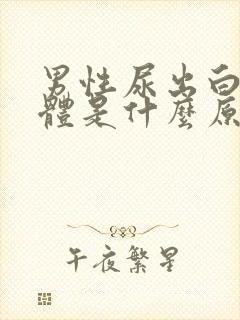 男性尿出白
體是什麼原
午夜繁星